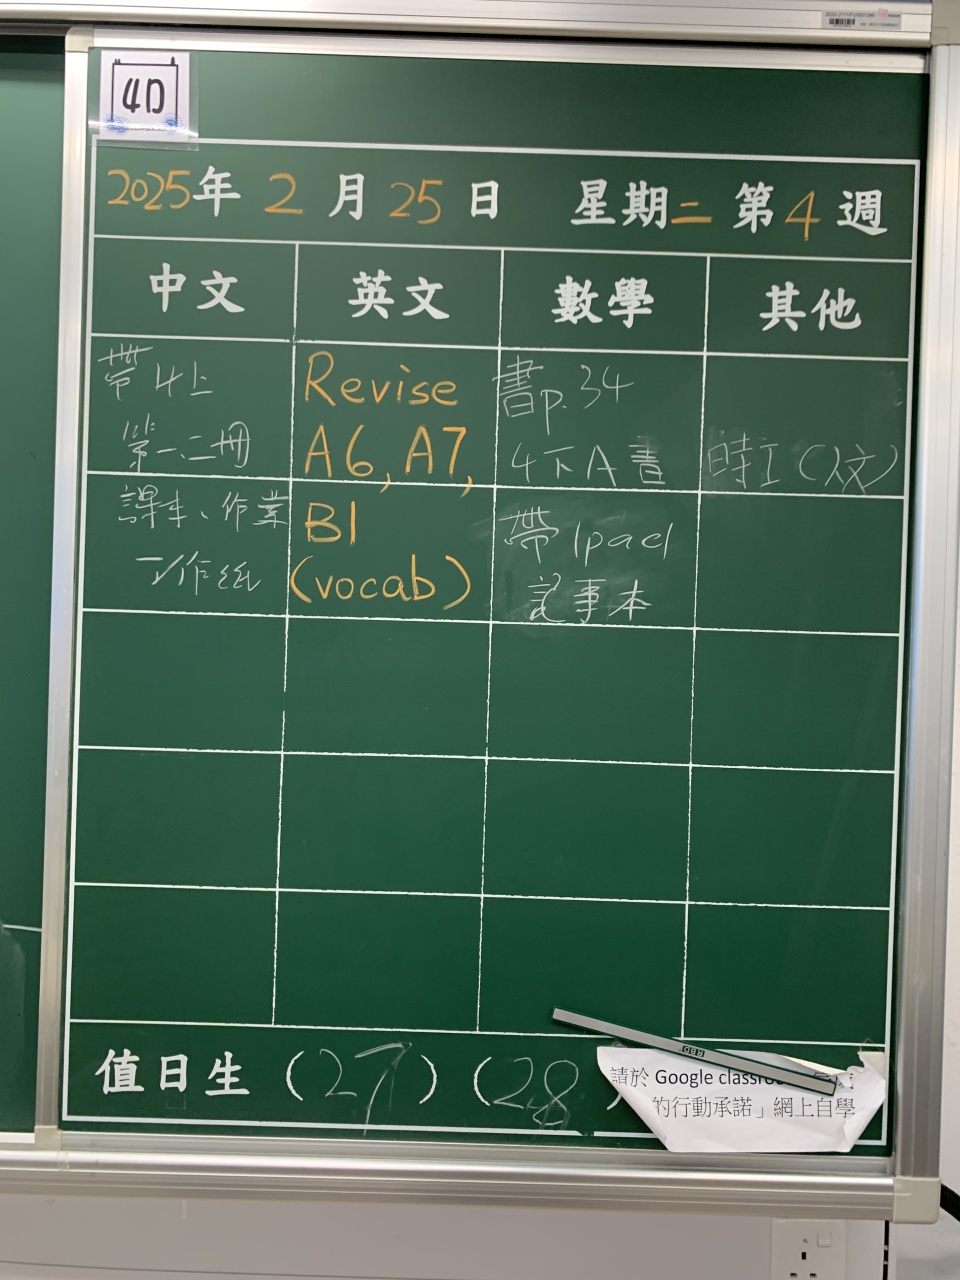 4D
2025年 2月25日 星期二 第4週
中文 英文 數學 其他
帶4上
第一、二冊
課本、作業
工作紙
Revise
A6, A7,
B1
(vocab)
書p.34
4下A書
帶Ipad
記事本
時工(人文)
值日生 (27) (28)
請於 Google classroo
的行動承諾」網上自學